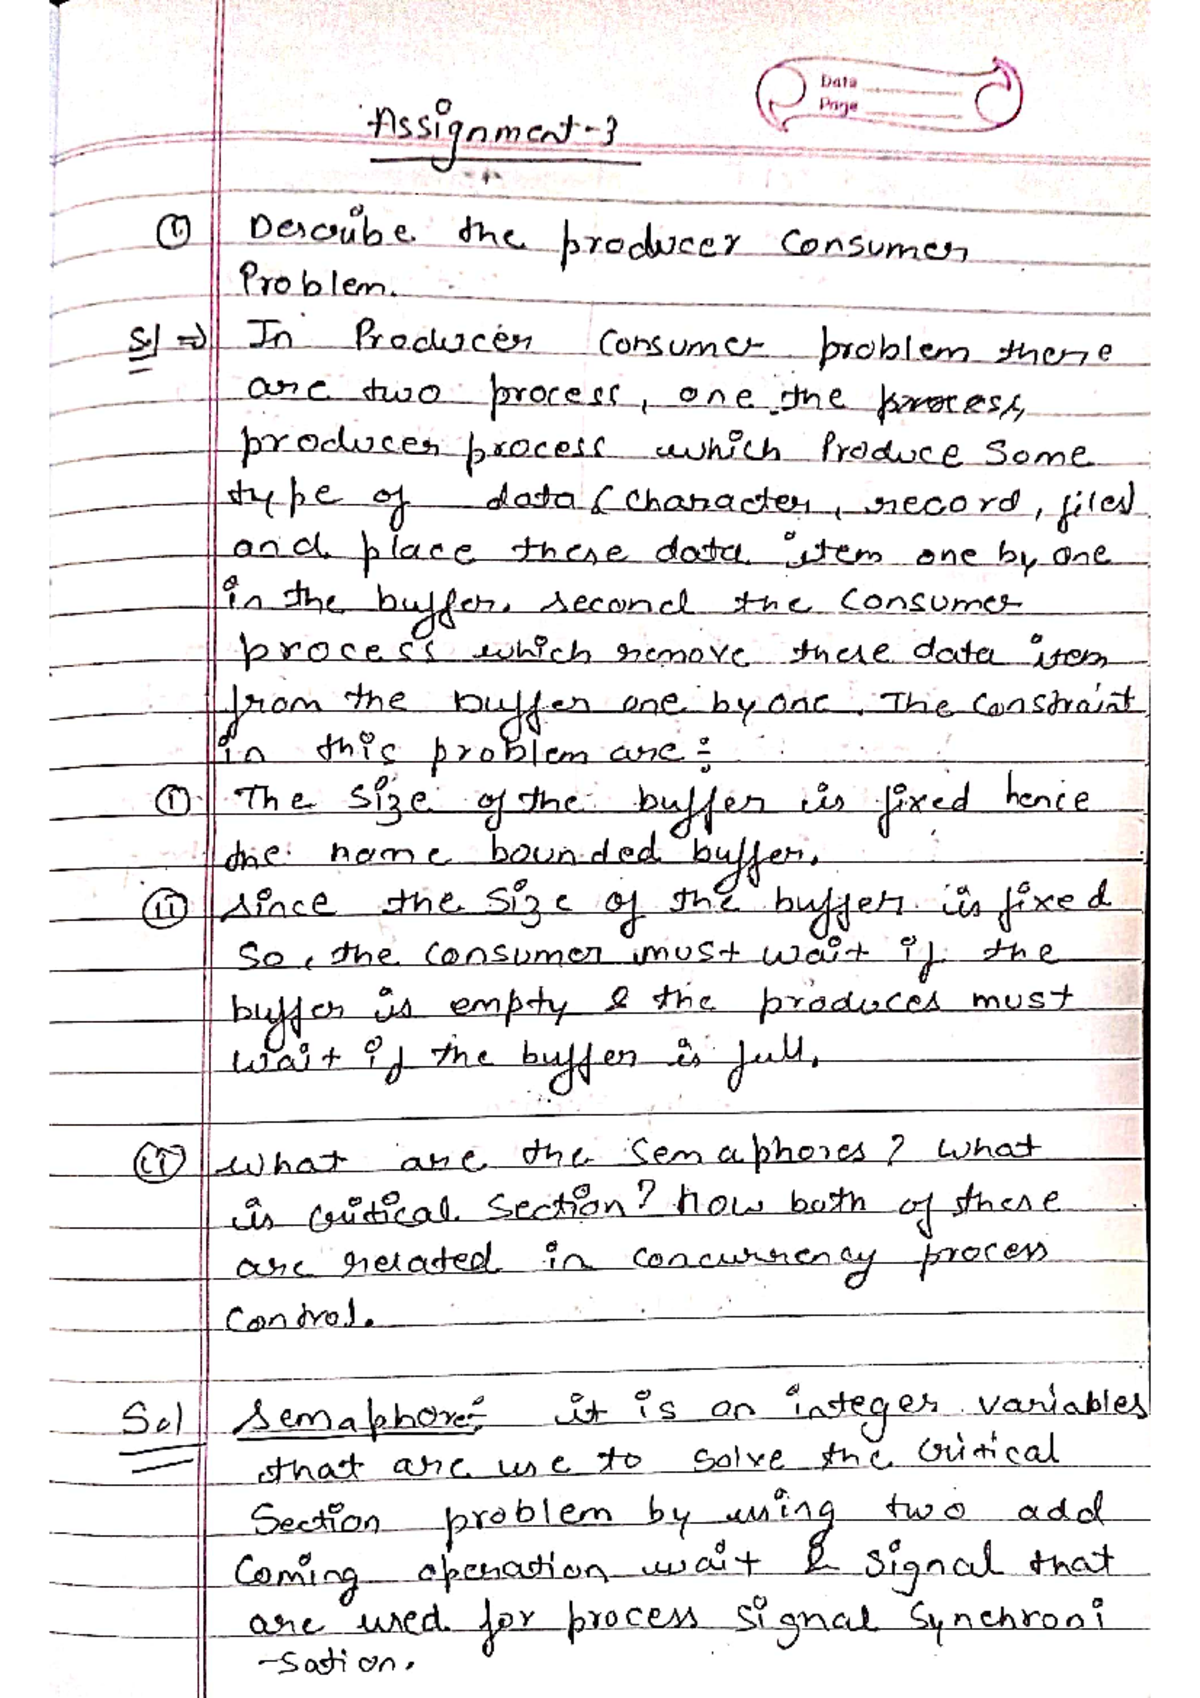 Date
Page
Assignment-3
① Describe the producer consumer
Problem.
Sol ⇒ In Producer consumer problem there
are two process, one the process,
producer process which Produce some
type of data (character, record, files)
and place these data item one by one
in the buffer. second the consumer
process which remove these data item
from the buffer one by one. The constraint
in this problem are :-
(i) The size of the buffer is fixed hence
the name bounded buffer.
(ii) Since the size of the buffer is fixed
so, the consumer must wait if the
buffer is empty & the produces must
wait if the buffer is full.
(ii) What are the semaphores? What
is critical section? how both of these
are related in concurrency process
control.
Sol Semaphore:- it is an integer variables
that are use to solve the critical
section problem by using two add
coming operation wait & signal that
are used for process signal synchroni
-sation.